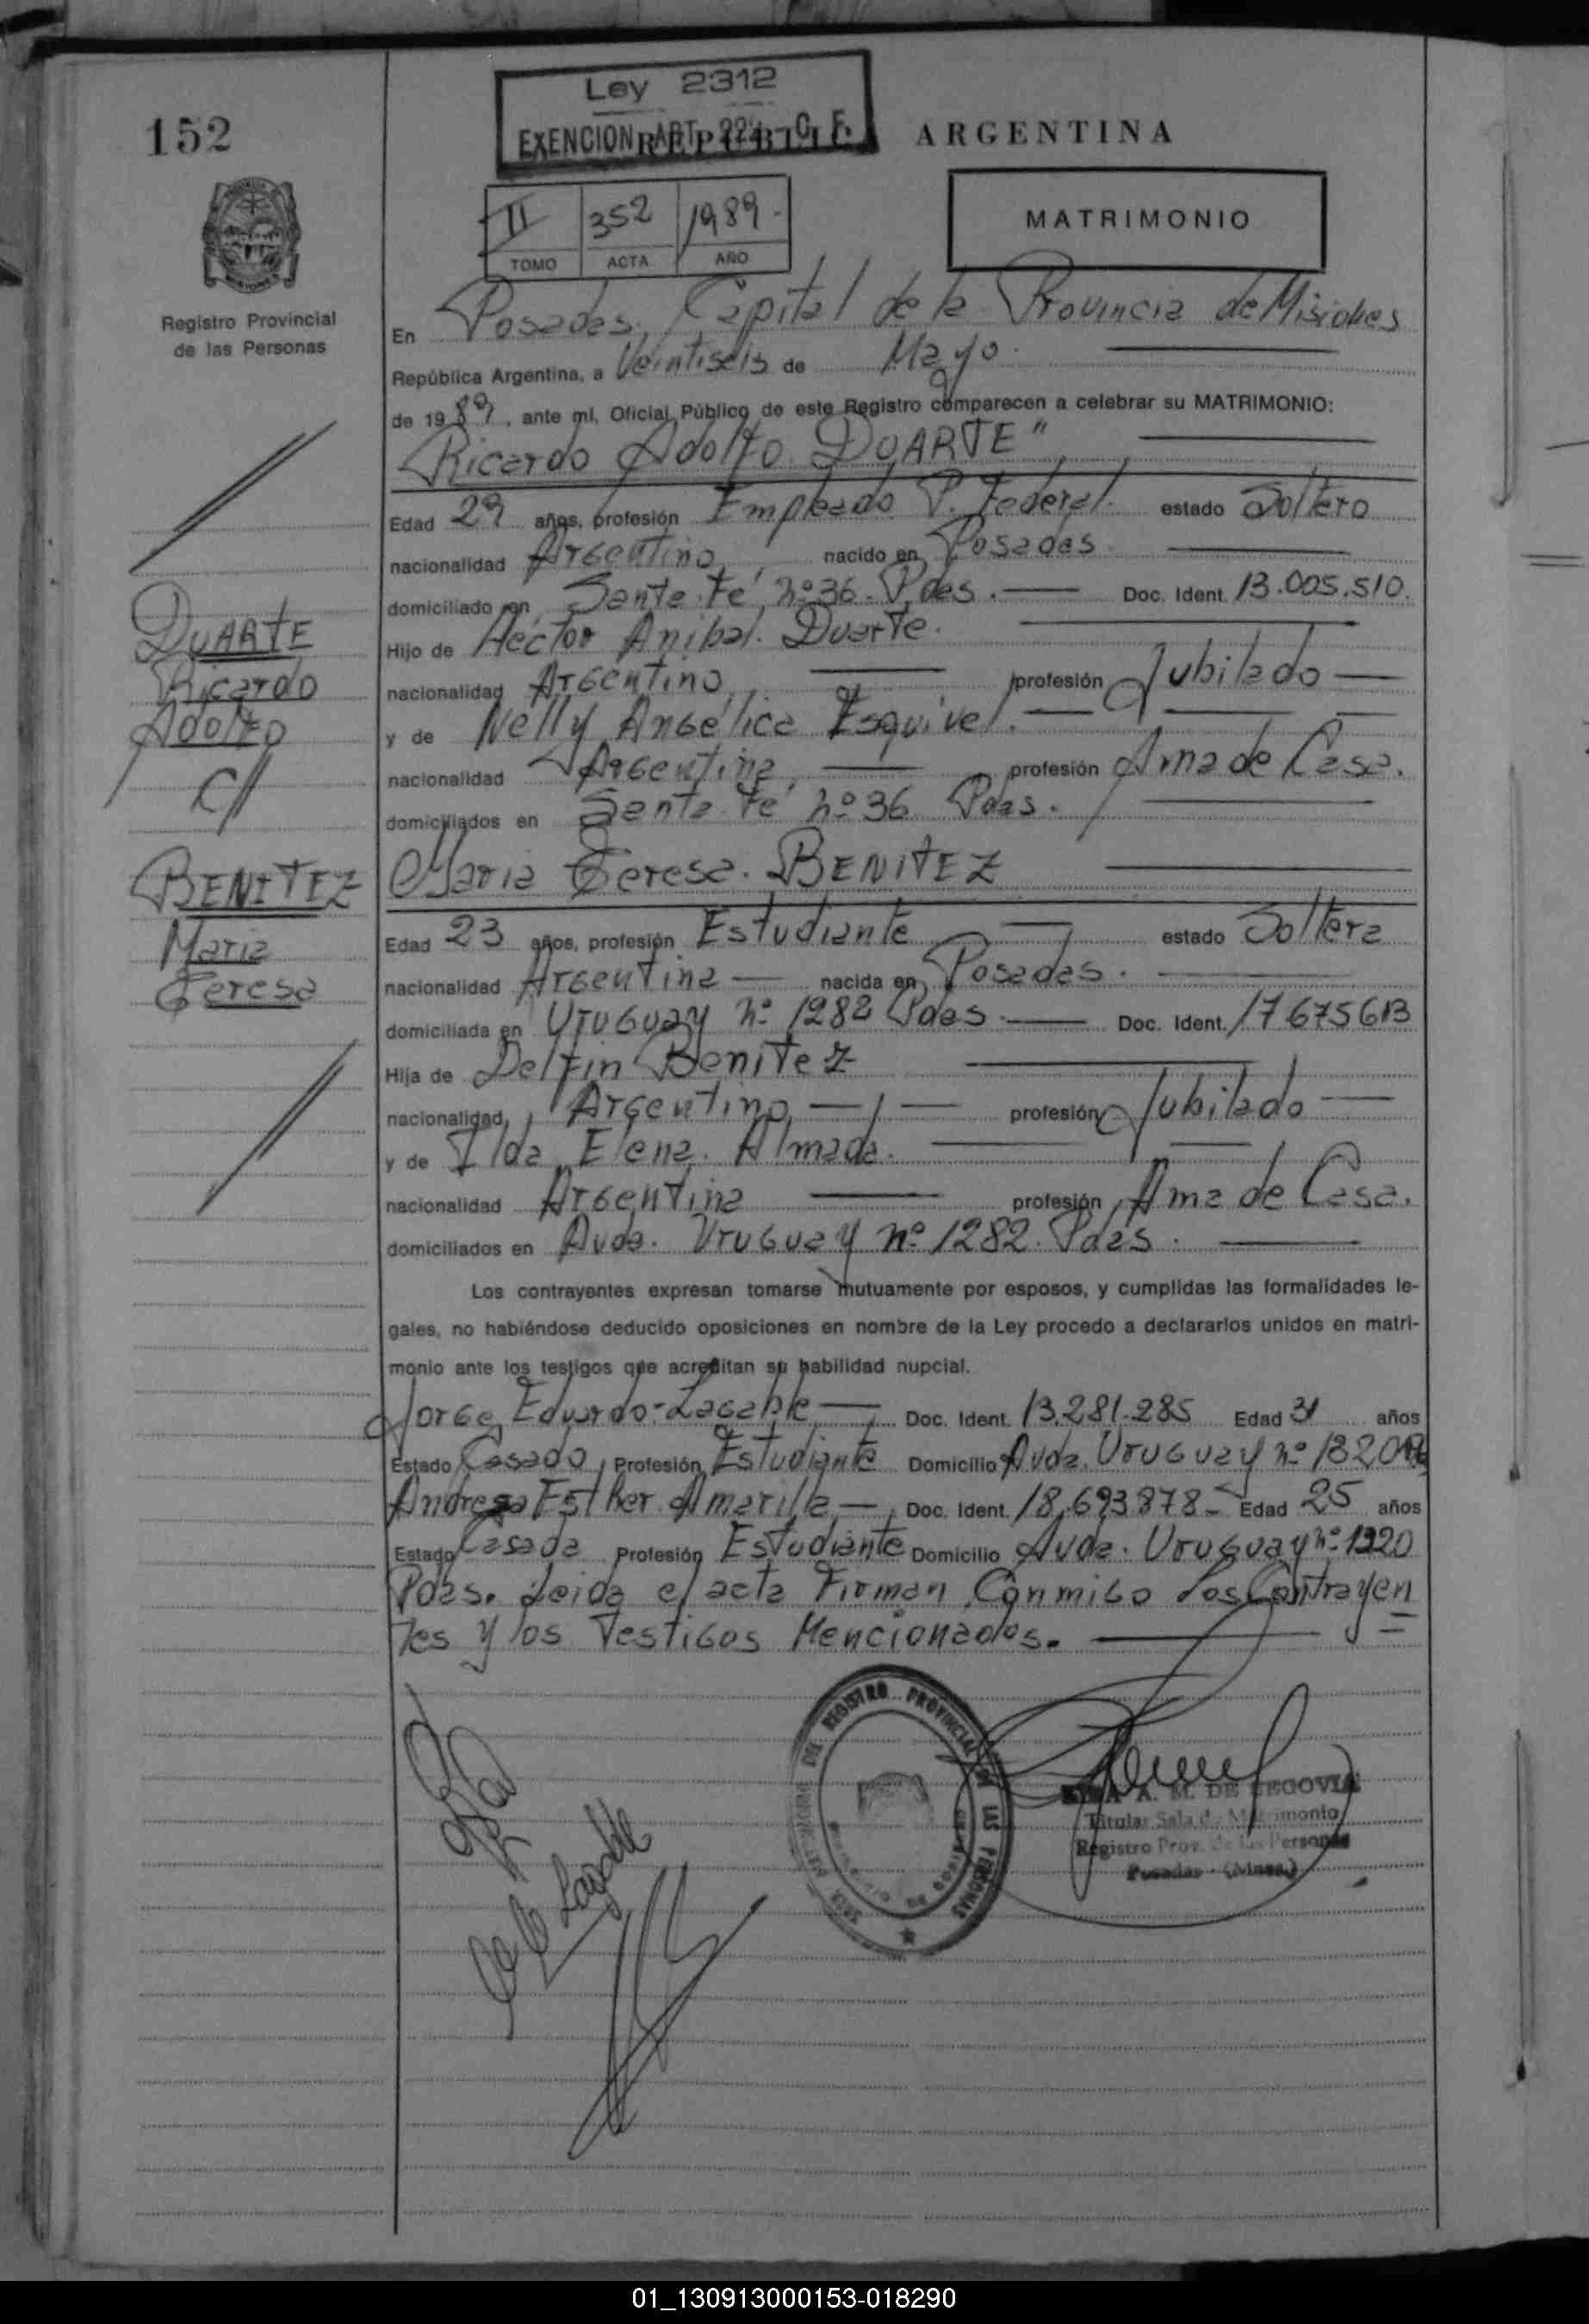 152
Ley 2312
EXENCION ART. 224 - C. F.
REPUBLICA ARGENTINA
II 352 1989.
TOMO ACTA AÑO
MATRIMONIO
Registro Provincial
de las Personas
En Posadas, Capital de la Provincia de Misiones
República Argentina, a Veintiseis de Mayo.
de 1989, ante mi, Oficial Público de este Registro comparecen a celebrar su MATRIMONIO:
Ricardo Adolfo DUARTE"
Edad 29 años, profesión Empleado P. Federal. estado Soltero
nacionalidad Argentino, nacido en Posadas
domiciliado en Santa Fé nº 36. Pdas. Doc. Ident. 13.005.510.
Hijo de Héctor Anibal Duarte.
nacionalidad Argentino, profesión Jubilado
y de Nelly Angélica Esquivel.
nacionalidad Argentina, profesión Ama de Casa.
domiciliados en Santa Fé nº 36 Pdas.
DUARTE
Ricardo
Adolfo
c//
BENITEZ
Maria
Teresa
Maria Teresa. BENITEZ
Edad 23 años, profesión Estudiante estado Soltera
nacionalidad Argentina nacida en Posadas.
domiciliada en Uruguay nº 1282 Pdas. Doc. Ident. 17675613
Hija de Delfin Benitez
nacionalidad Argentino profesión Jubilado
y de Ilda Elena. Almada.
nacionalidad Argentina profesión Ama de Casa.
domiciliados en Avda. Uruguay nº 1282. Pdas.
Los contrayentes expresan tomarse mutuamente por esposos, y cumplidas las formalidades le-
gales, no habiéndose deducido oposiciones en nombre de la Ley procedo a declararlos unidos en matri-
monio ante los testigos que acreditan su habilidad nupcial.
Jorge Eduardo Lagable Doc. Ident. 13.281.285 Edad 31 años
Estado Casado, Profesión Estudiante Domicilio Avda. Uruguay nº 1320
Andresa Esther Amarilla, Doc. Ident. 18.693878 Edad 25 años
Estado Casada Profesión Estudiante Domicilio Avda. Uruguay nº 1320
Pdas. Leida el acta Firman Conmigo Los Contrayen
tes y los Testigos Mencionados.
REGISTRO PROVINCIAL DE LAS PERSONAS
A. M. DE SEGOVIA
Titular Sala de Matrimonio
Registro Prov. de las Personas
Posadas - (Mnes.)
01_130913000153-018290